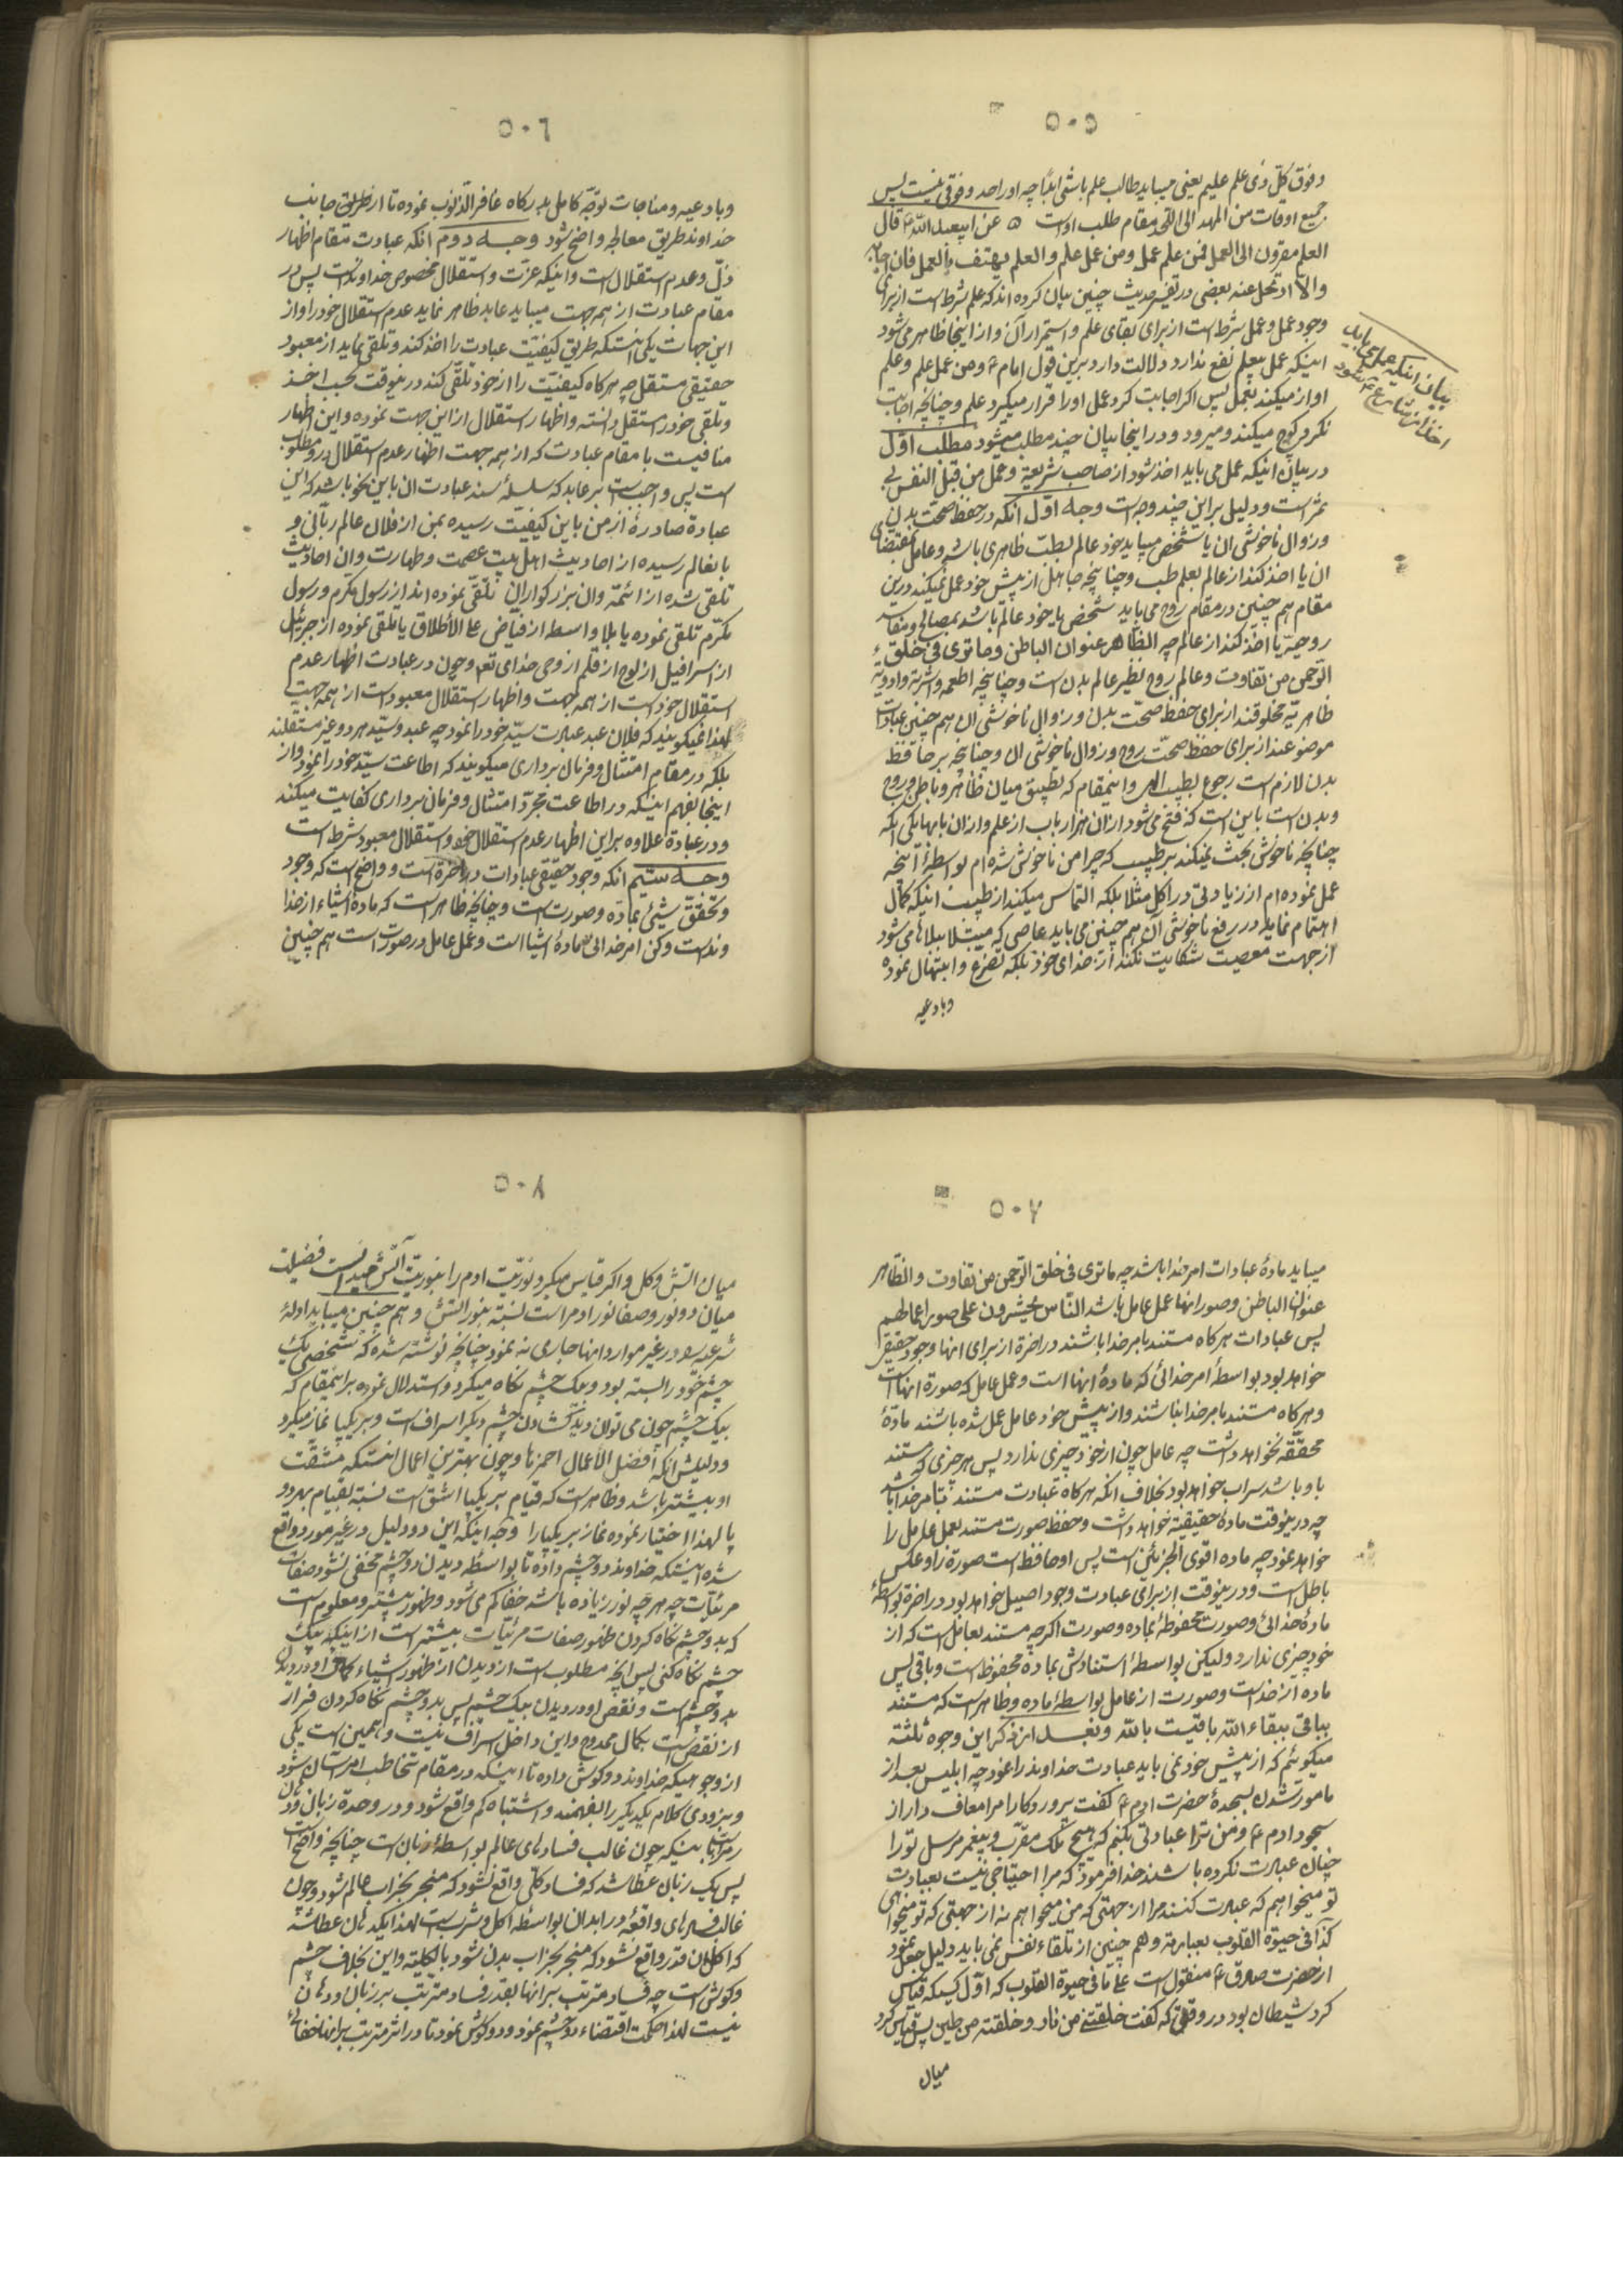 ٥٠٥
وفوق کلّ ذی علم علیم یعنی میباید طالب علم باشی ابدًا چه اورا حد و فوقی نیست پس
جمیع اوقات من المهد الی اللّحد مقام طلب است عن ابیعبد اللّه ع قال
العلم مقرون الی العمل فمن علم عمل ومن عمل علم والعلم یهتف بالعمل فان اجابه
والّا ارتحل عنه بعضی در تفسیر حدیث چنین بیان کرده اند که علم شرط است از برای
وجود عمل وعمل شرط است از برای بقای علم واستمرار آن واز اینجا ظاهر می شود
اینکه عمل بیعلم نفع ندارد ودلالت دارد برین قول امام ع ومن عمل علم وعلم
اواز میکند بعمل پس اکر اجابت کرد عمل اورا قرار میکیرد علم وچنانچه اجابت
نکرد کوچ میکند ومیرود ودر اینجا بیان چند مطلب میشود مطلب اوّل
در بیان اینکه عمل می باید اخذ شود از صاحب شریعة وعمل من قبل النفس بی
ثمر است ودلیل بر این چند وجه است وجه اوّل انکه در حفظ صحّت بدن
وزوال ناخوشی ان یا شخص میباید خود عالم بطبّ ظاهری باشد وعامل بمقتضای
ان یا اخذ کند از عالم بعلم طب وچنانچه جاهل از پیش خود عمل نمیکند درین
مقام هم چنین در مقام روح می باید شخص یا خود عالم باشد بمصالح ومفاسد
روحیّه یا اخذ کند از عالم چه الظّاهر عنوان الباطن وما تری فی خلق
الرّحمن من تفاوت وعالم روح نظیر عالم بدن است وچنانچه اطعمه واشربه وادویهٔ
ظاهریّه مخلوقند از برای حفظ صحّت بدن وزوال ناخوشی ان هم چنین عبادات
موضوعند از برای حفظ صحّت روح وزوال ناخوشی ان وچنانچه بر حافظ
بدن لازم است رجوع بطبیب واینمقام که تطبیق میان ظاهر وباطن وروح
وبدن است بابی است که فتح می شود از ان هزار باب از علم واز ان بابها یکی انکه
چنانچه ناخوش بحث نمیکند بر طبیب که چرا من ناخوش شده ام بواسطهٔ آنچه
عمل نموده ام از زیادتی در اکل مثلا بلکه التماس میکند از طبیب اینکه کمال
اهتمام نماید در رفع ناخوشی آن هم چنین می باید عاصی که مبتلا ببلاها می شود
از جهت معصیت شکایت نکند از خدای خود بلکه تضرّع وابتهال نموده
وبادعیه
بیان اینکه عمل می باید
اخذ از شارع ع شود
٥٠٦
وبادعیه ومناجات توجّه کامل بدرکاه غافر الذّنوب نموده تا از طریق جانب
خداوند طریق معالجه واضح شود وجه دوم انکه عبادت مقام اظهار
ذلّ وعدم استقلال است واینکه عزّت واستقلال مخصوص خداوند است پس در
مقام عبادت از همه جهت میباید عابد ظاهر نماید عدم استقلال خود را واز
این جهات یکی انستکه طریق کیفیّت عبادت را اخذ کند وتلقی نماید از معبود
حقیقی مستقل چه هرکاه کیفیّت را از خود تلقّی کند درینوقت بحسب اخذ
وتلقی خود را مستقل دانسته واظهار استقلال از این جهت نموده واین اظهار
منافیست با مقام عبادت که از همه جهت اظهار عدم استقلال در او مطلوب
است پس واجب است بر عابد که سلسلهٔ سند عبادت ان باین نحو باشد که این
عبادة صادرهٔ از من باین کیفیّت رسیده بمن از فلان عالم ربّانی و
بانعالم رسیده از احادیث اهل بیت عصمت وطهارت وان احادیث
تلقی شده از ائمّه وان بزرکواران تلقّی نموده اند از رسول مکرم ورسول
مکرّم تلقی نموده یا بلا واسط از فیاض علی الاطلاق یا تلقی نموده از جبرئیل
از اسرافیل از لوح از قلم از وحی خدای تعم وچون در عبادت اظهار عدم
استقلال خود است از همه جهت واظهار استقلال معبود است از همه جهت
لهذا نمیکویند که فلان عبد عبادت سیّد خود را نمود چه عبد وسیّد هر دو غیر مستقلند
بلکه در مقام امتثال وفرمان برداری میکویند که اطاعت سیّد خود را نمود واز
اینجا بفهم اینکه در اطاعت مجرّد امتثال وفرمان برداری کفایت میکند
ودر عبادة علاوه بر این اظهار عدم استقلال خود واستقلال معبود شرط است
وجه سیّم انکه وجود حقیقی عبادات در اخرة است وواضح است که وجود
وتحقق شیئ بمادّه وصورت است وچنانچه ظاهر است که مادهٔ اشیاء از خدا
ونداست وکن امر خدائی ماده اشیا است وعمل عامل در صورت است هم چنین
٥٠٧
میباید مادهٔ عبادات امر خدا باشد چه ما تری فی خلق الرّحمن من تفاوت والظّاهر
عنوان الباطن وصور انها عمل عامل باشد النّاس یحشرون علی صور اعمالهم
پس عبادات هرکاه مستند بامر خدا باشند در اخرة از برای انها وجود حقیقی
خواهد بود بواسطهٔ امر خدائی که مادهٔ انها است وعمل عامل که صورة انها است
وهرکاه مستند بامر خدا نباشند واز پیش خود عامل عمل شده باشند مادّهٔ
محقّقه نخواهد داشت چه عامل چون از خود چیزی ندارد پس هر چیزی که مستند
باو باشد سراب خواهد بود بخلاف انکه هرکاه عبادت مستند بامر خدا باشد
چه درینوقت مادهٔ حقیقیّه خواهد داشت وحفظ صورت مستند بعمل عامل را
خواهد نمود چه ماده اقوی الجزئین است پس او حافظ است صورة را وعکس
باطل است ودرینوقت از برای عبادت وجود اصیل خواهد بود در اخرة بواسطهٔ
مادهٔ خدائی وصورت محفوظهٔ بماده وصورت اکرچه مستند بعامل است که از
خود چیزی ندارد ولیکن بواسطهٔ استنادش بماده محفوظ است وباقی پس
ماده از خداست وصورت از عامل بواسطهٔ ماده وظاهر است که مستند
بباقی ببقاء اللّه باقیست باللّه وبعد از ذکر این وجوه ثلثه
میکوئیم که از پیش خود نمی باید عبادت خداوند را نمود چه ابلیس بعد از
مامور شدن بسجدهٔ حضرت ادم ع کفت پروردکارا مرا معاف دار از
سجود ادم ع ومن ترا عبادتی بکنم که هیچ ملک مقرّب وپیغمبر مرسل تو را
چنان عبادت نکرده باشند خدا فرمود که مرا احتیاجی نیست بعبادت
تو میخواهم که عبادت کنند مرا از جهتی که من میخواهم نه از جهتی که تو میخواهی
کذا فی حیوة القلوب بعبارته وهم چنین از تلقاء نفس نمی باید دلیل جعل نمود
از حضرت صادق ع منقول است علی ما فی حیوة القلوب که اوّل کسیکه قیاس
کرد شیطان بود در وقتی که کفت خلقتنی من نار وخلقته من طین پس قیاس کرد
میان
٥٠٨
میان اتش وکل واکر قیاس میکرد نوریّت ادم را بنوریّت اتش میدانست فضیلت
میان دو نور وصفا نور ادم را است نسبة بنور اتش وهم چنین میباید ادلهٔ
شرعیه را در غیر موارد انها جاری نه نمود چنانچه نوشته شده که شخصی یک
چشم خود را بسته بود وبیک چشم نکاه میکرد واستدلال نموده بر اینمقام که
بیک چشم چون می توان دید کشادن چشم دیکر اسراف است وبر یکپا نماز میکرد
ودلیلش انکه افضل الاعمال احمزها وچون بهترین اعمال انستکه مشقّت
او بیشتر باشد وظاهر است که قیام بر یکپا اشق است نسبة بقیام بهر دو
پا لهذا اختیار نموده نماز بر یکپا را وجه اینکه این دو دلیل در غیر مورد واقع
شده اینستکه خداوند دو چشم داده تا بواسطهٔ دیدن دو چشم مخفی نشود صفات
مرئیّات چه هر چه نور زیاده باشد خفا کم می شود وظهور بیشتر ومعلوم است
که بدو چشم نکاه کردن ظهور صفات مرئیات بیشتر است از اینکه بیک
چشم نکاه کنی پس انچه مطلوب است از دیدن از ظهور اشیاء کمال او در دیدن
بدو چشم است ونقص او در دیدن بیک چشم پس بدو چشم نکاه کردن فرار
از نقص است بکمال ممدوح واین داخل اسراف نیست وهمین است یکی
از وجوهیکه خداوند دو کوش داده تا اینکه در مقام تخاطب امر اسان شود
وبزودی کلام یکدیکر را بفهمند واشتباه کم واقع شود ودر وحدة زبان ودهان
بینکه چون غالب فسادهای عالم بواسطهٔ زبان است چنانچه واضح است
پس یک زبان عطا شد که فساد کلّی واقع نشود که منجر بخراب عالم شود وچون
غالب فسادهای واقعهٔ در ابدان بواسطه اکل وشرب است لهذا یکدهان عطا شد
که اکل ان قدر واقع نشود که منجر بخراب بدن شود بالکلیّه واین بخلاف چشم
وکوش است چه فساد مترتب بر انها بقدر فساد مترتب بر زبان ودهان
نیست لهذا حکمت اقتضاء دو چشم نمود ودو کوش نمود تا در اثر مترتب بر انها خفائی